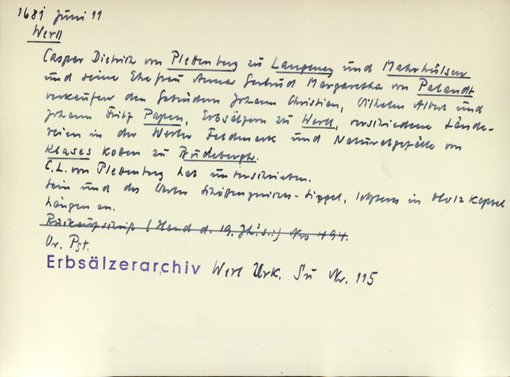 1681 Juni 11
Werl
Caspar Dietrich von Plettenberg zu Langeney und Mahrhülsen
und seine Ehefrau Anna Gertrud Margaretha von Palandt
verkaufen den Gebrüdern Johann Christian, Wilhelm Albert und
Johann Fritz Papen, Erbsälzern zu Werl, verschiedene Lände-
reien in der Werler Feldmark und Naturalgefälle von
Klases Kotten zu Büdeberghe.
C.L. von Plettenberg hat unterschrieben.
Sein und des Werler Schöffengerichts-Siegel, letzteres in Holzkapsel
hängen an.
Rückaufschrift (Hand d. 19. Jh's.:) Nro 494.
Or. Pgt.
Erbsälzerarchiv Werl Urk. Nr. 115